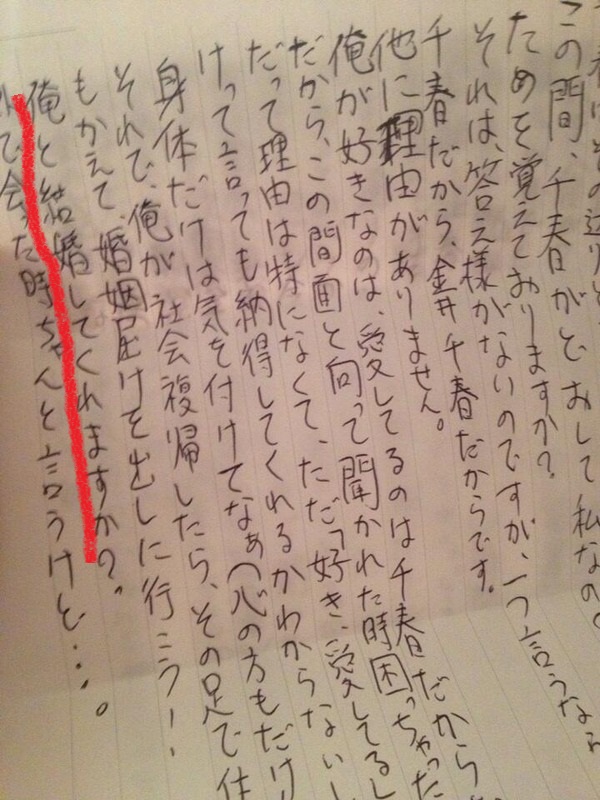 春はその辺りど
この間、千春がどおして私なの。
ためを覚えておりますか？
それは、答え様がないのですが、一つ言うなら
千春だから、金井千春だからです。
他に理由がありません。
俺が好きなのは、愛してるのは千春だから
だから、この間面と向って聞かれた時困っちゃった
だって理由は特になくて、ただっ好き、愛してるし
けって言っても納得してくれるかわからないし
身体だけは気を付けてなぁ(心の方もだけ
それで、俺が社会複帰したら、その足で住
もかえて、婚姻届けを出しに行こう！
俺と結婚してくれますか？
で会った時ちゃんと言うけど…。